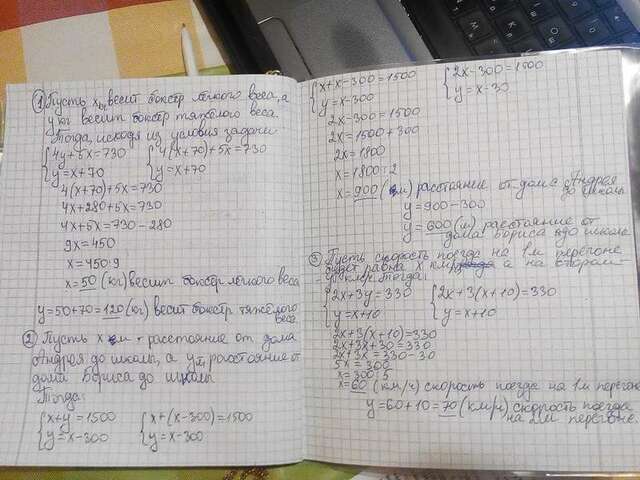 ① Пусть x кг весит боксёр лёгкого веса, а
y кг весит боксёр тяжёлого веса.
Тогда, исходя из условия задачи
{4y+5x=730 {4(x+70)+5x=730
{y=x+70 {y=x+70
4(x+70)+5x=730
4x+280+5x=730
4x+5x=730-280
9x=450
x=450:9
x=50 (кг) весит боксёр лёгкого веса
y=50+70=120 (кг) весит боксёр тяжёлого
веса
② Пусть x м - расстояние от дома
Андрея до школы, а y м расстояние от
дома Бориса до школы
Тогда:
{x+y=1500 {x+(x-300)=1500
{y=x-300 {y=x-300
{x+x-300=1500 {2x-300=1500
{y=x-300 {y=x-30
2x-300=1500
2x=1500+300
2x=1800
x=1800:2
x=900 (м) расстояние от дома Андрея
до школы
y=900-300
y=600 (м) расстояние от
дома Бориса до школы
③ Пусть скорость поезда на 1м перегоне
будет равна x км/ч а на втором -
y км/ч. Тогда:
{2x+3y=330 {2x+3(x+10)=330
{y=x+10 {y=x+10
2x+3(x+10)=330
2x+3x+30=330
2x+3x=330-30
5x=300
x=300:5
x=60 (км/ч) скорость поезда на 1м перегоне
y=60+10=70 (км/ч) скорость поезда
на 2м перегоне.